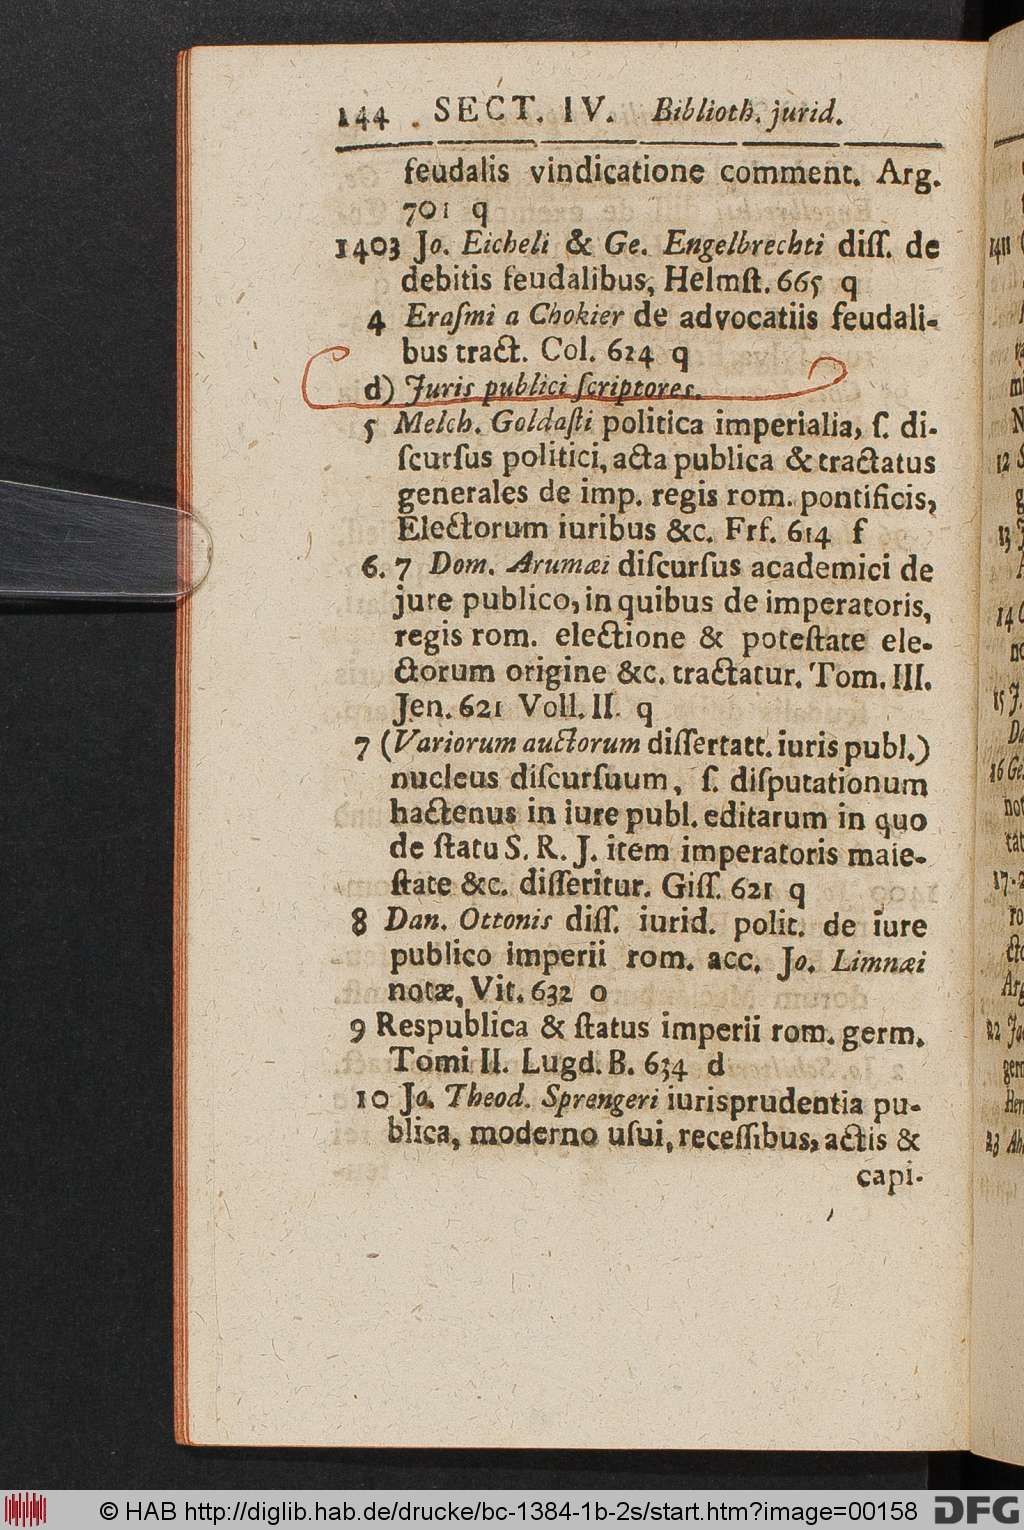 144 . SECT. IV. Biblioth. jurid.
feudalis vindicatione comment. Arg.
701 q
1403 Jo. Eicheli & Ge. Engelbrechti diſſ. de
debitis feudalibus, Helmſt. 665 q
4 Eraſmi a Chokier de advocatiis feudali-
bus tract. Col. 624 q
d) Juris publici ſcriptores.
5 Melch. Goldaſti politica imperialia, ſ. di-
ſcurſus politici, acta publica & tractatus
generales de imp. regis rom. pontificis,
Electorum iuribus &c. Frf. 614 f
6. 7 Dom. Arumæi diſcurſus academici de
jure publico, in quibus de imperatoris,
regis rom. electione & poteſtate ele-
ctorum origine &c. tractatur. Tom. III.
Jen. 621 Voll. II. q
7 (Variorum auctorum diſſertatt. iuris publ.)
nucleus diſcurſuum, ſ. diſputationum
hactenus in iure publ. editarum in quo
de ſtatu S. R. J. item imperatoris maie-
ſtate &c. diſſeritur. Giſſ. 621 q
8 Dan. Ottonis diſſ. iurid. polit. de iure
publico imperii rom. acc. Jo. Limnæi
notæ, Vit. 632 o
9 Respublica & ſtatus imperii rom. germ.
Tomi II. Lugd. B. 634 d
10 Jo. Theod. Sprengeri iurisprudentia pu-
blica, moderno uſui, receſſibus, actis &
capi-
© HAB http://diglib.hab.de/drucke/bc-1384-1b-2s/start.htm?image=00158 DFG